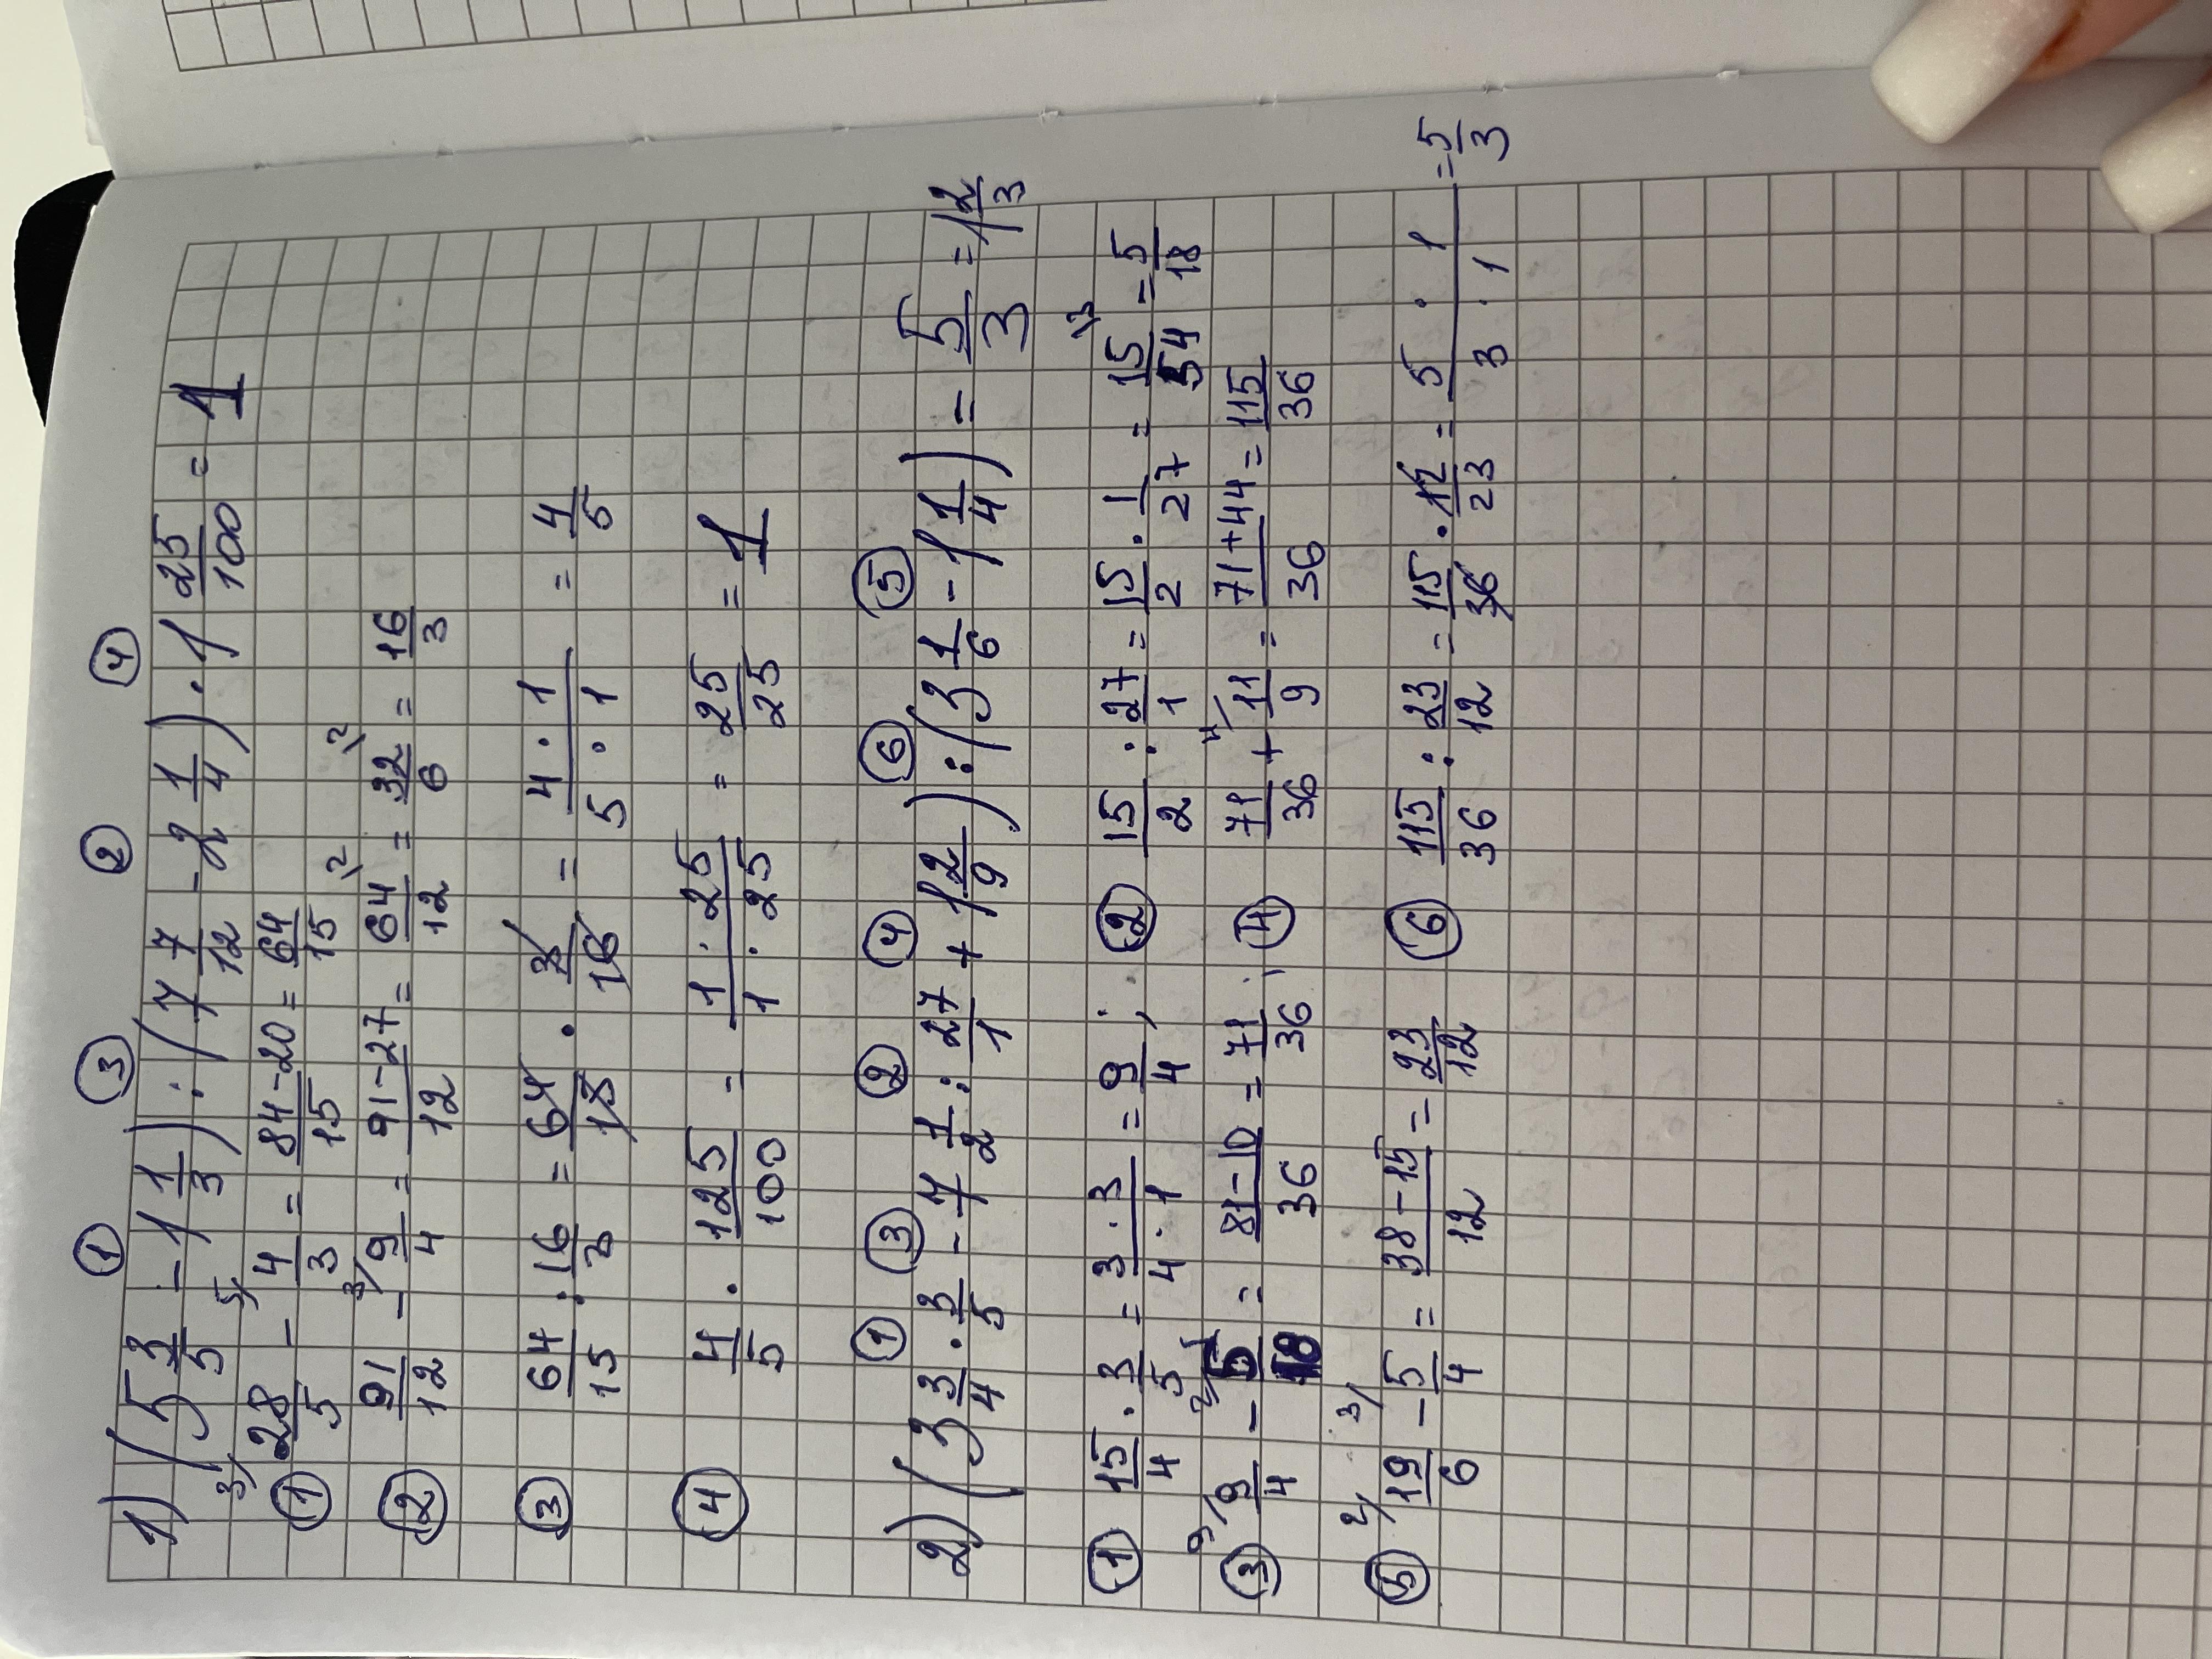 1) (5 3/5 - 1 1/3) : (7 7/12 - 2 1/4) · 1 25/100 = 1
① 28/5 - 4/3 = 84-20/15 = 64/15
② 91/12 - 9/4 = 91-27/12 = 64/12 = 32/6 = 16/3
③ 64/15 : 16/3 = 64/15 · 3/16 = 4·1/5·1 = 4/5
④ 4/5 · 125/100 = 1·25/1·25 = 25/25 = 1
2) (3 3/4 · 3/5 - 7 1/2 : 27/1 + 1 2/9) : (3 1/6 - 1 1/4) = 5/3 = 1 2/3
① 15/4 · 3/5 = 3·3/4·1 = 9/4 ; ② 15/2 : 27/1 = 15/2 · 1/27 = 15/54 = 5/18
③ 9/4 - 5/18 = 81-10/36 = 71/36 ; ④ 71/36 + 11/9 = 71+44/36 = 115/36
⑤ 19/6 - 5/4 = 38-15/12 = 23/12 ⑥ 115/36 : 23/12 = 115/36 · 12/23 = 5·1/3·1 = 5/3